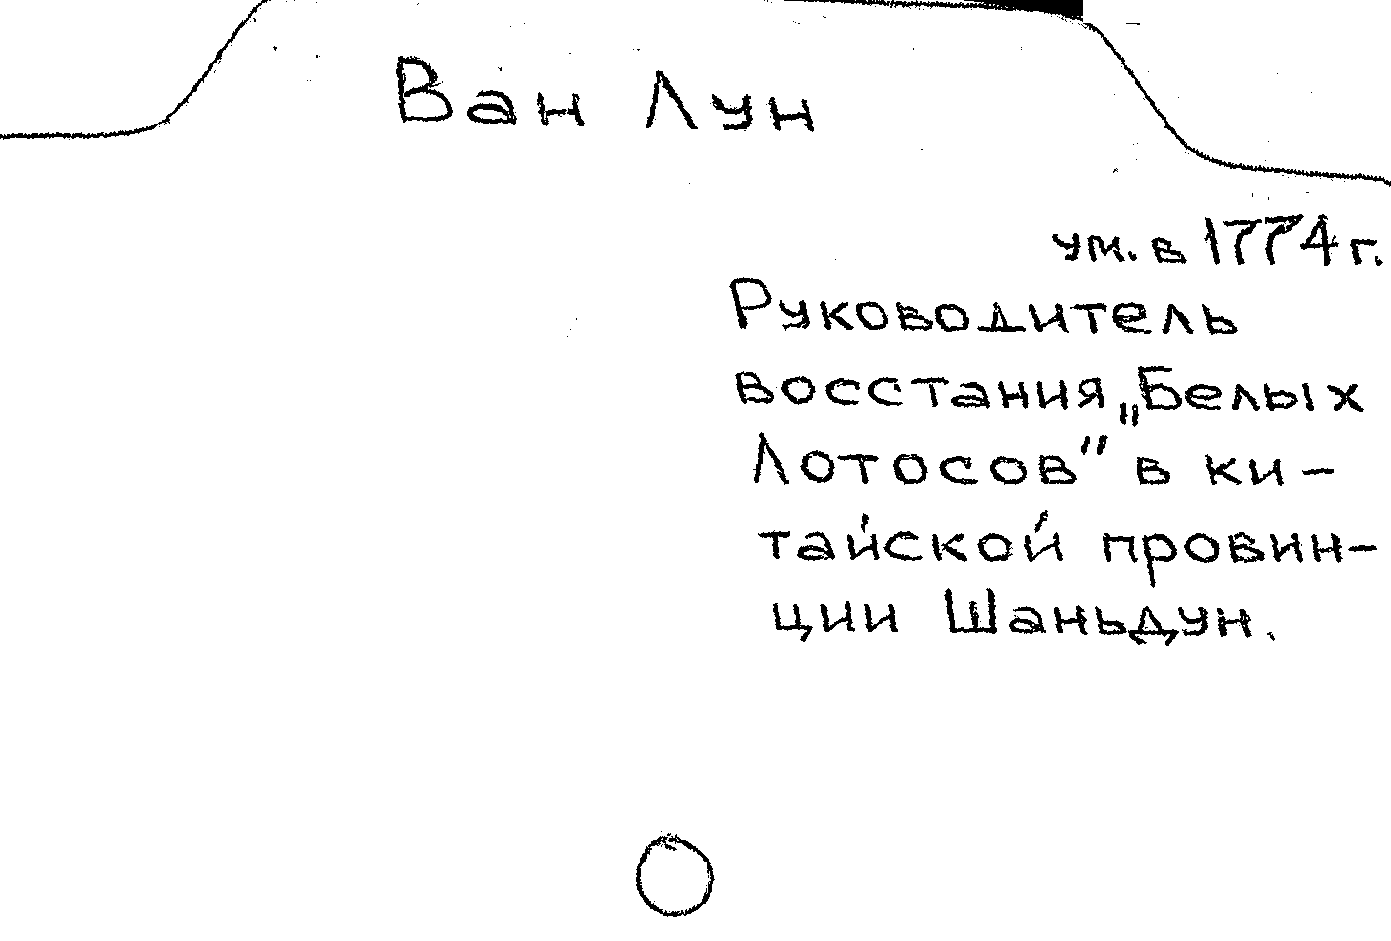 Ван Лун
ум. в 1774 г.
Руководитель
восстания „Белых
Лотосов" в ки-
тайской провин-
ции Шаньдун.